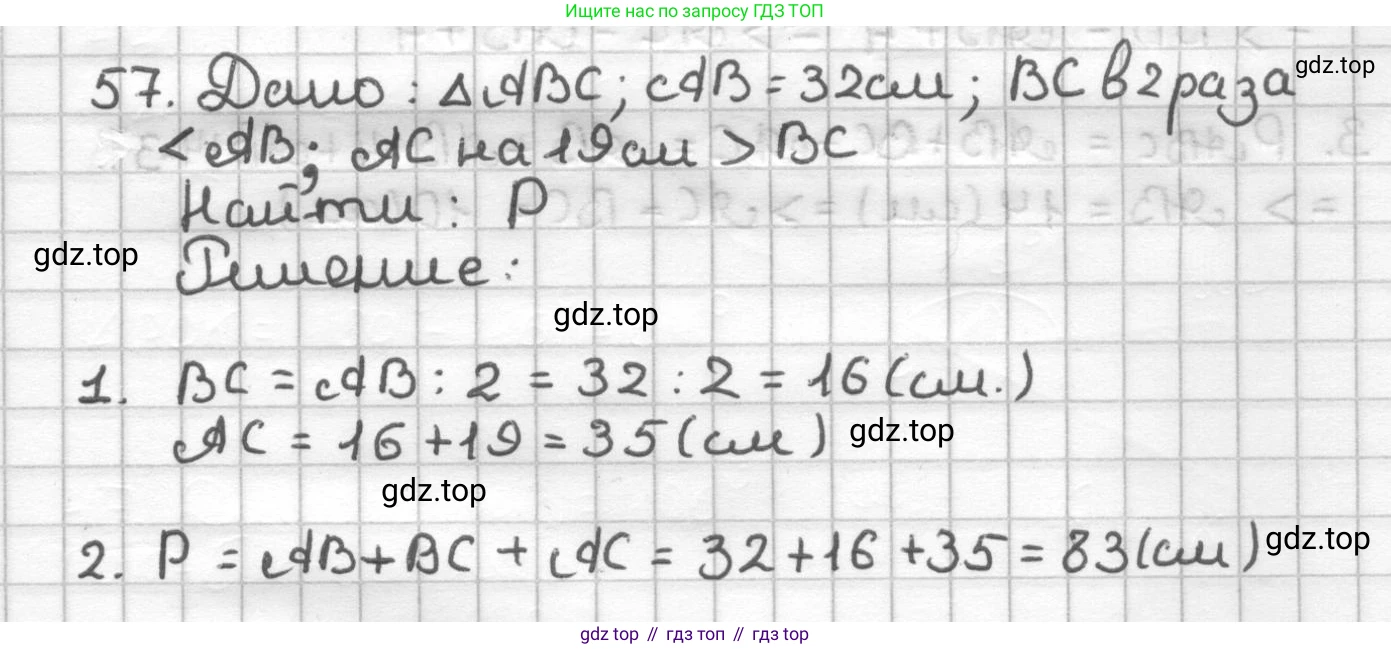 Ищите нас по запросу ГДЗ ТОП
57. Дано: △ABC; AB = 32см; BC в 2 раза
gdz.top
< AB; AC на 19см > BC
Найти: P
gdz.top
Решение:
gdz.top
1. BC = AB : 2 = 32 : 2 = 16 (см.)
AC = 16 + 19 = 35 (см)
gdz.top
gdz.top
2. P = AB + BC + AC = 32 + 16 + 35 = 83 (см)
gdz.top
gdz top // гдз топ // гдз top